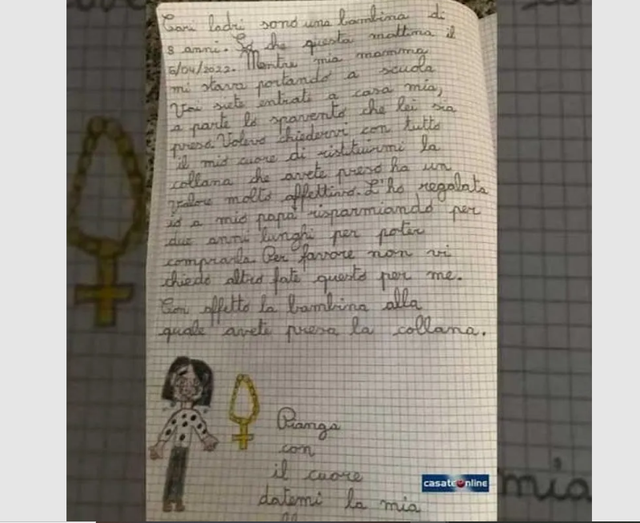 Cari ladri sono una bambina di
8 anni. So che questa mattina il
5/04/2022. Mentre mia mamma
mi stava portando a scuola
Voi siete entrati a casa mia,
a parte lo spavento che lei sia
presa. Volevo chiedervi con tutto
il mio cuore di ristituirmi la
collana che avete preso ha un
valore molto affettivo. L'ho regalata
io a mio papà risparmiando per
due anni lunghi per poter
comprarla. Per favore non vi
chiedo altro fate questo per me.
Con affetto la bambina alla
quale avete presa la collana.
Piango
con
il cuore
datemi la mia
casateonline
mia